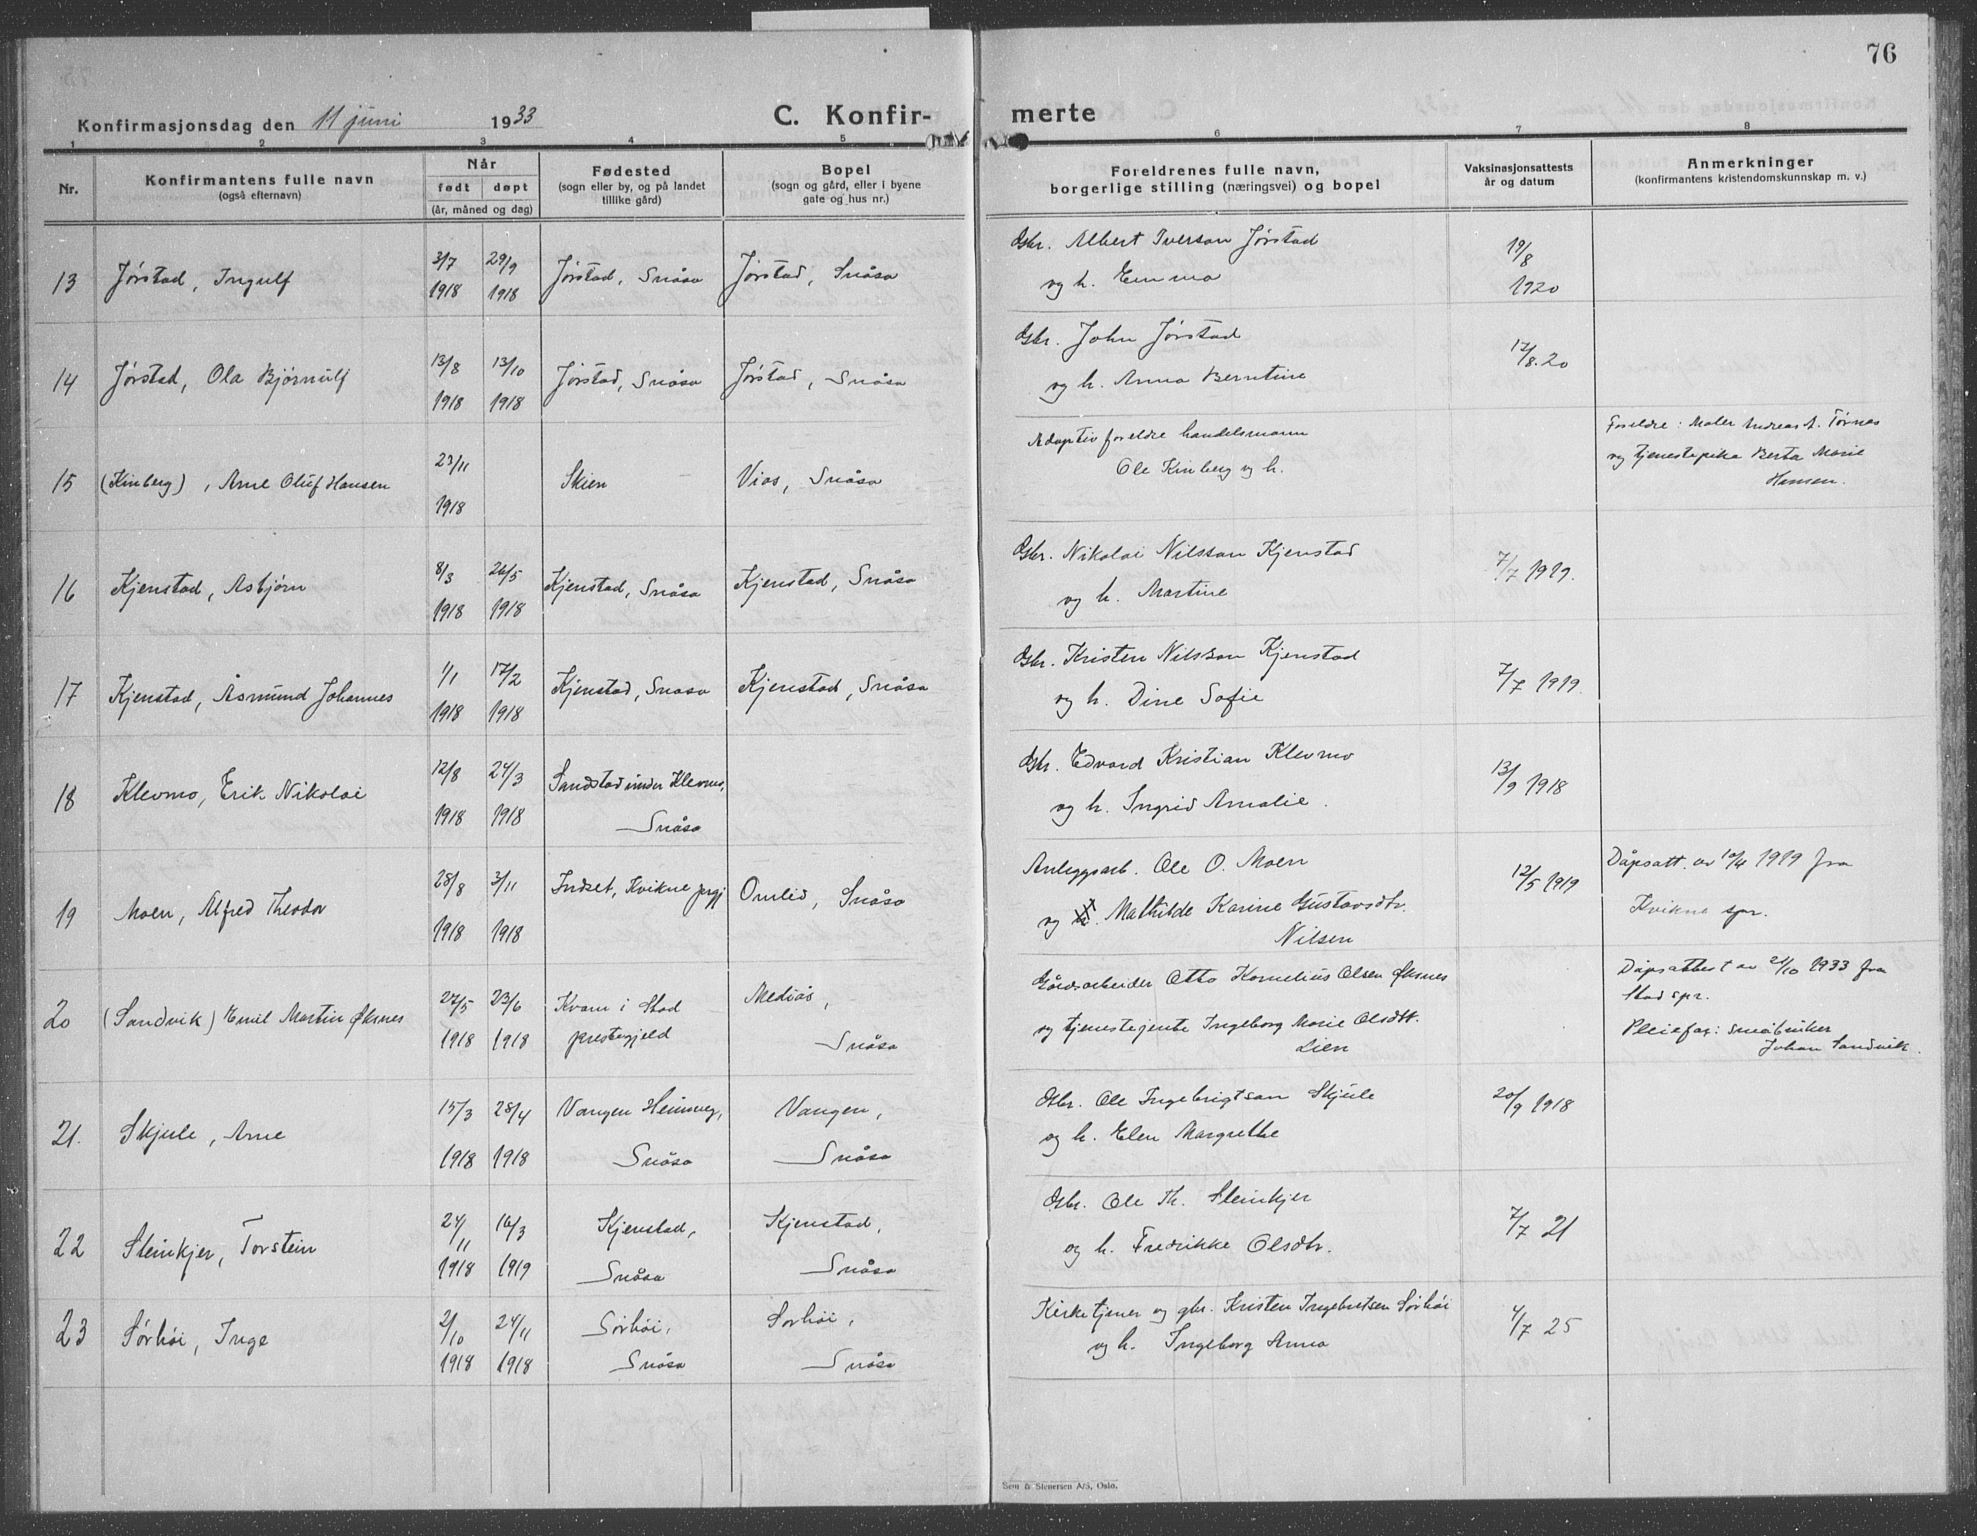 76
Konfirmasjonsdag den 11 juni 1933
C. Konfir-
merte
1 2 3 4 5 6 7 8
Nr.
Konfirmantens fulle navn
(også efternavn)
Når
født døpt
(år, måned og dag)
Fødested
(sogn eller by, og på landet
tillike gård)
Bopel
(sogn og gård, eller i byene
gate og hus nr.)
Foreldrenes fulle navn,
borgerlige stilling (næringsvei) og bopel
Vaksinasjonsattests
år og datum
Anmerkninger
(konfirmantens kristendomskunnskap m. v.)
Gbr. Albert Iverson Jørstad
3/7 29/9 19/8
13 Jørstad, Ingulf Jørstad, Snåsa Jørstad, Snåsa og h. Emma
1918 1918 1920
Gbr. John Jørstad
13/8 13/10
14 Jørstad, Ola Bjørnulf Jørstad, Snåsa Jørstad, Snåsa og h. Anna Berntine 17/8.20
1918 1918
Adoptivforeldre handelsmann Foreldre: Maler Andreas A. Tørnes
23/11 og tjenestepike Berta Marie
15 (Kinberg), Arne Oluf Hansen Skien Vios, Snåsa Ole Kinberg og h. Hansen.
1918
Gbr. Nikolai Nilsson Kjenstad
8/3 26/5
16 Kjenstad, Asbjørn Kjenstad, Snåsa Kjenstad, Snåsa og h. Martine 7/7 1919.
1918 1918
Gbr. Kristen Nilsson Kjenstad
1/1 17/2
17 Kjenstad, Åsmund Johannes Kjenstad, Snåsa Kjenstad, Snåsa og h. Dine Sofie 7/7 1919.
1918 1918
Gbr. Edvard Kristian Klevmo
12/8 24/3
18 Klevmo, Erik Nikolai Sandstad under Klevmo, og h. Ingrid Amalie. 13/9 1918
1918 1918 Snåsa
Anleggsarb. Ole O. Moen Dåpsatt. av 10/4 1919 fra
28/8 3/11
19 Moen, Alfred Theodor Indset, Kvikne prgj Omlid, Snåsa og Mathilde Karine Gustavsdtr. 12/5 1919 Kvikne spr.
1918 1918 Nilsen
Gårdsarbeider Otto Kornelius Olsen Øksnes Dåpsattest av 21/10 1933 fra
27/5 23/6 Medias, Stod spr.
20 (Sandvik) Emil Martin Øksnes Kvam i Stod og tjenestejente Ingeborg Marie Olsdtr. Pleiefar: småbruker
1918 1918 prestegjeld Snåsa Lien Johan Sandvik.
Gbr. Ole Ingebrigtsen Skjule
15/3 28/4 Vangen, Vangen,
21. Skjule, Arne og h. Elen Margrethe 20/9 1918
1918 1918 Snåsa Snåsa
Gbr. Ole Th. Steinkjer
24/11 16/3 Kjenstad, Kjenstad,
22 Steinkjer, Torstein og h. Fredrikke Olsdtr. 7/7 21
1918 1919 Snåsa Snåsa
Kirketjener og gbr. Kristen Ingebretsen Sørhøi
2/10 24/11 Sørhøi, Sørhøi,
23 Sørhøi, Inge og h. Ingeborg Anna 4/7 25
1918 1918 Snåsa Snåsa
Sem & Stenersen A/S, Oslo.